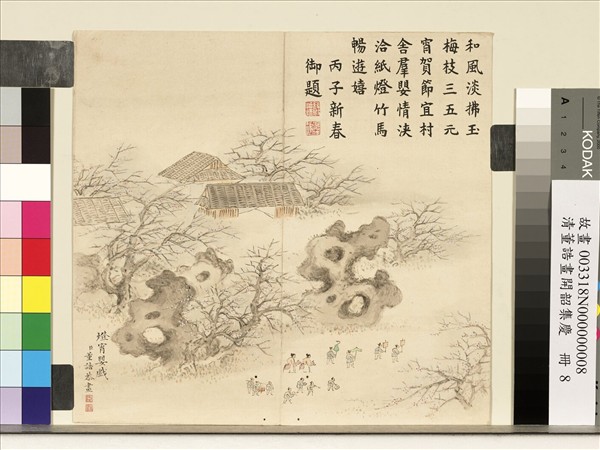 和風淡拂玉
梅枝三五元
宵賀節宜村
舍羣嬰情浹
洽紙燈竹馬
暢遊嬉
丙子新春
御題
燈宵嬰戲
臣董誥恭畫
A 1 2 3 4
KODAK
故畫 003318N000000008
清董誥畫開韶集慶 冊 8